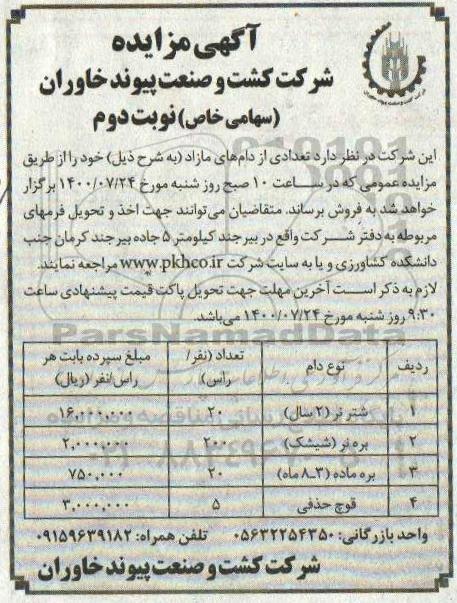 آگهی مزایده
شرکت کشت و صنعت پیوند خاوران
(سهامی خاص) نوبت دوم
این شرکت در نظر دارد تعدادی از دام‌های مازاد (به شرح ذیل) خود را از طریق
مزایده عمومی که در ساعت ۱۰ صبح روز شنبه مورخ ۱۴۰۰/۰۷/۲۴ برگزار
خواهد شد به فروش برساند. متقاضیان می‌توانند جهت اخذ و تحویل فرمهای
مربوطه به دفتر شرکت واقع در بیرجند کیلومتر ۵ جاده بیرجند کرمان جنب
دانشکده کشاورزی و یا به سایت شرکت www.pkhco.ir مراجعه نمایند.
لازم به ذکر است آخرین مهلت جهت تحویل پاکت قیمت پیشنهادی ساعت
۹:۳۰ روز شنبه مورخ ۱۴۰۰/۰۷/۲۴ می‌باشد.
ردیف نوع دام تعداد (نفر/راس) مبلغ سپرده بابت هر راس/نفر (ریال)
۱ شتر نر (۲ سال) ۲۰ ۱۶,۰۰۰,۰۰۰
۲ بره نر (شیشک) ۲۰۰ ۲,۰۰۰,۰۰۰
۳ بره ماده (۳-۸ ماه) ۲۰ ۷۵۰,۰۰۰
۴ قوچ حذفی ۵ ۳,۰۰۰,۰۰۰
واحد بازرگانی: ۰۵۶۳۲۲۵۴۳۵۰ تلفن همراه: ۰۹۱۵۹۶۳۹۱۸۲
شرکت کشت و صنعت پیوند خاوران
ParsNamadData